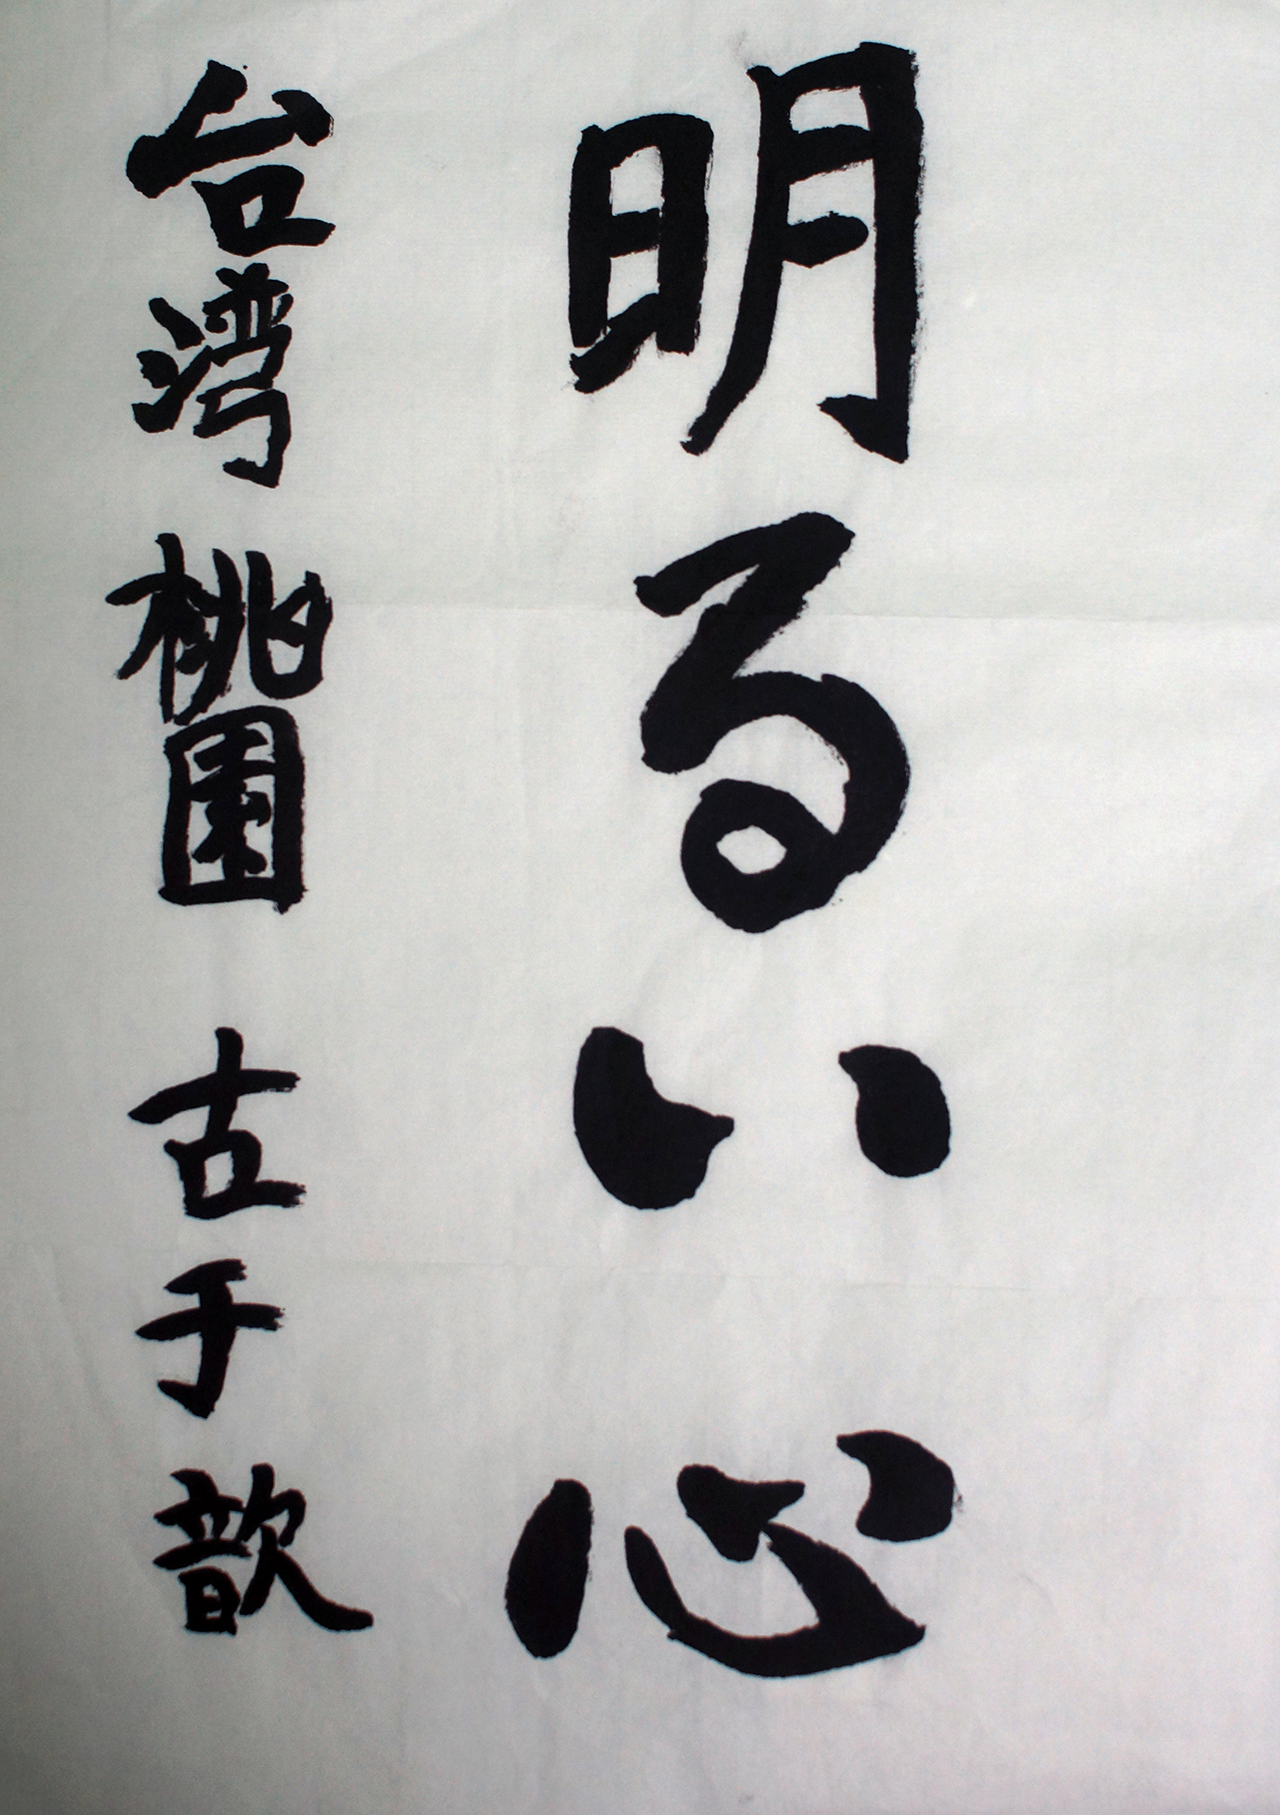 明るい心
台湾 桃園 古于歆